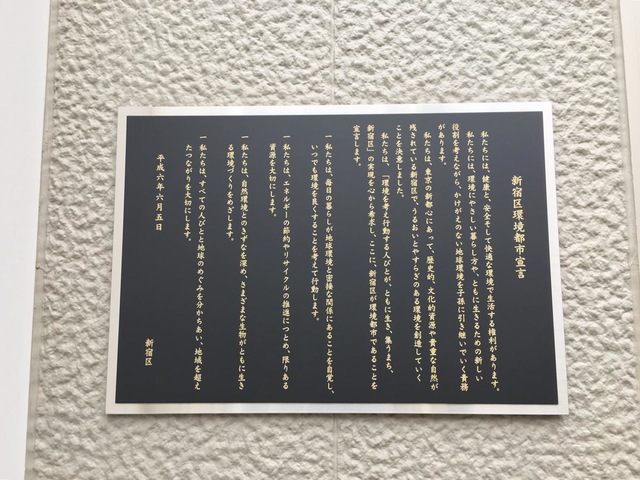 新宿区環境都市宣言
私たちには、健康と、安全そして快適な環境で生活する権利があります。
私たちには、環境にやさしい暮らし方や、ともに生きるための新しい
役割を考えながら、かけがえのない地球環境を子孫に引き継いでいく責務
があります。
私たちは、東京の新都心にあって、歴史的、文化的資源や貴重な自然が
残されている新宿区で、うるおいとやすらぎのある環境を創造していく
ことを決意しました。
私たちは、「環境を考え行動する人びとが、ともに生き、集うまち、
新宿区」の実現を心から希求し、ここに、新宿区が環境都市であることを
宣言します。
一 私たちは、毎日の暮らしが地球環境と密接な関係にあることを自覚し、
いつでも環境を良くすることを考えて行動します。
一 私たちは、エネルギーの節約やリサイクルの推進につとめ、限りある
資源を大切にします。
一 私たちは、自然環境とのきずなを深め、さまざまな生物がともに生き
る環境づくりをめざします。
一 私たちは、すべての人びとと地球のめぐみを分かちあい、地域を超え
たつながりを大切にします。
平成六年六月五日
新宿区